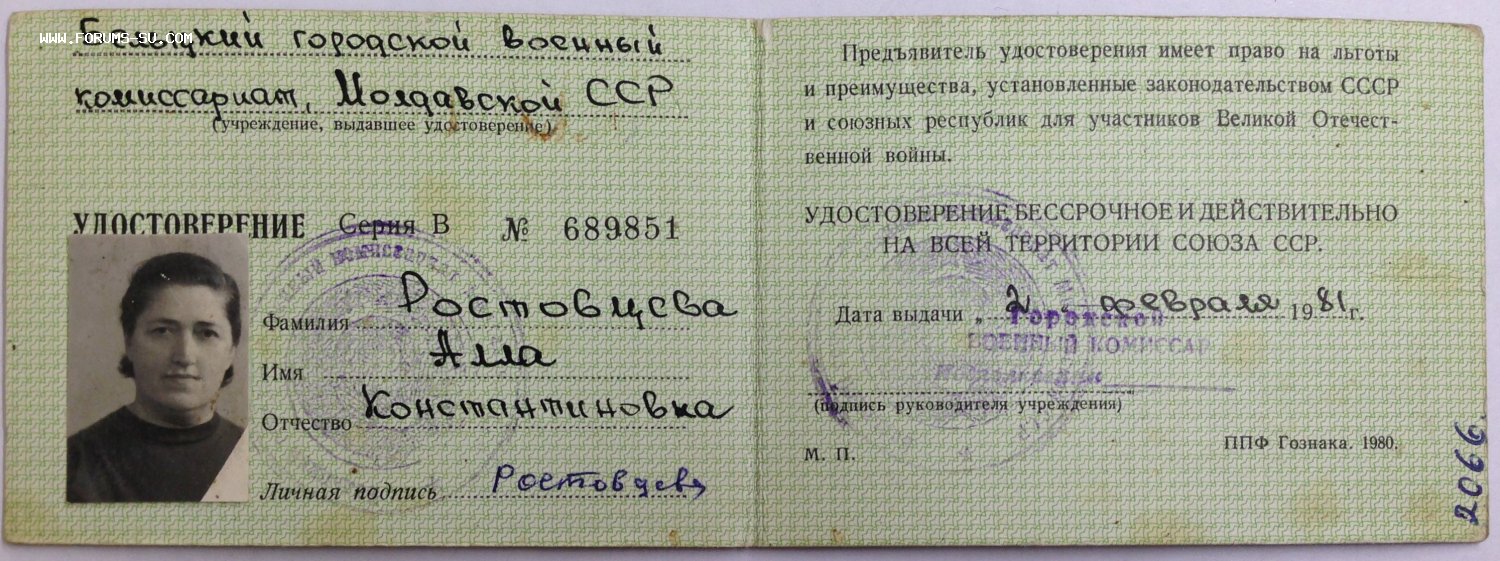 Бельцкий городской военный
WWW.FORUMS-SU.COM
комиссариат, Молдавской ССР
(учреждение, выдавшее удостоверение)
УДОСТОВЕРЕНИЕ Серия В № 689851
Фамилия Ростовцева
Имя Алла
Отчество Константиновна
Личная подпись Ростовцева
Предъявитель удостоверения имеет право на льготы
и преимущества, установленные законодательством СССР
и союзных республик для участников Великой Отечест-
венной войны.
УДОСТОВЕРЕНИЕ БЕССРОЧНОЕ И ДЕЙСТВИТЕЛЬНО
НА ВСЕЙ ТЕРРИТОРИИ СОЮЗА ССР.
Дата выдачи „ 2 февраля 1981г.
Городской
ВОЕННЫЙ КОМИССАР
(подпись руководителя учреждения)
М. П.
ППФ Гознака. 1980.
2066.